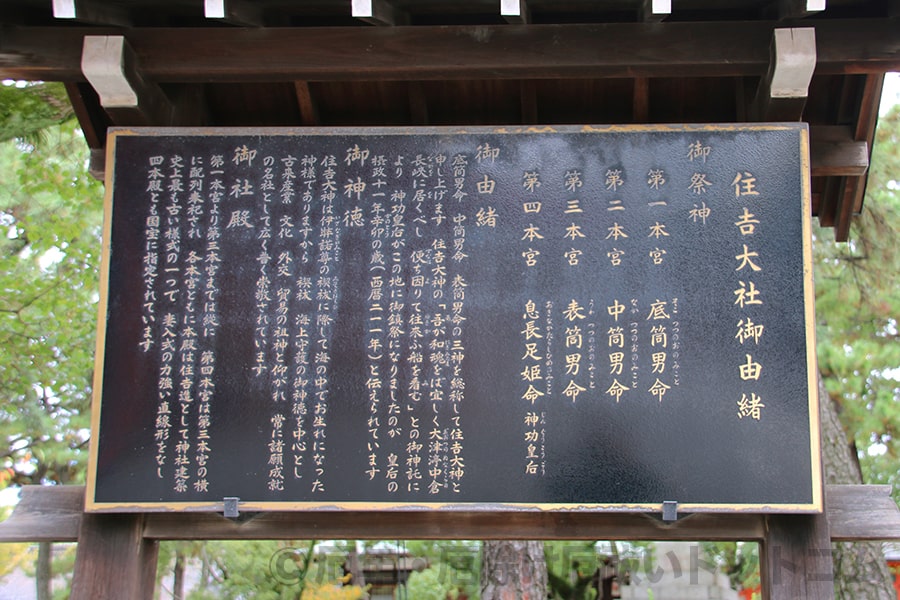 住吉大社御由緒
御祭神
第一本宮 底筒男命
そこ つつのおのみこと
第二本宮 中筒男命
なか つつのおのみこと
第三本宮 表筒男命
うわ つつのおのみこと
第四本宮 息長足姫命 神功皇后
おきながたらしひめのみこと じんぐうこうごう
御由緒
底筒男命 中筒男命 表筒男命の三神を総称して住吉大神と
申し上げます 住吉大神の「吾が和魂をば宜しく大津渟中倉
長峡に居くべし 便ち因りて往来ふ船を看む」との御神託に
より 神功皇后がこの地に御鎮祭になりましたのが 皇后の
摂政十一年辛卯の歳(西暦二一一年)と伝えられています
御神徳
住吉大神は伊弉諾尊の禊祓に際して海の中でお生れになった
神様でありますから 禊祓 海上守護の御神徳を中心とし
古来産業 文化 外交 貿易の祖神と仰がれ 常に諸願成就
の名社として広く普く崇敬されています
御社殿
第一本宮より第三本宮までは縦に 第四本宮は第三本宮の横
に配列奉祀され 各本宮ともに本殿は住吉造として神社建築
史上最も古い様式の一つで 妻入式の力強い直線形をなし
四本殿とも国宝に指定されています